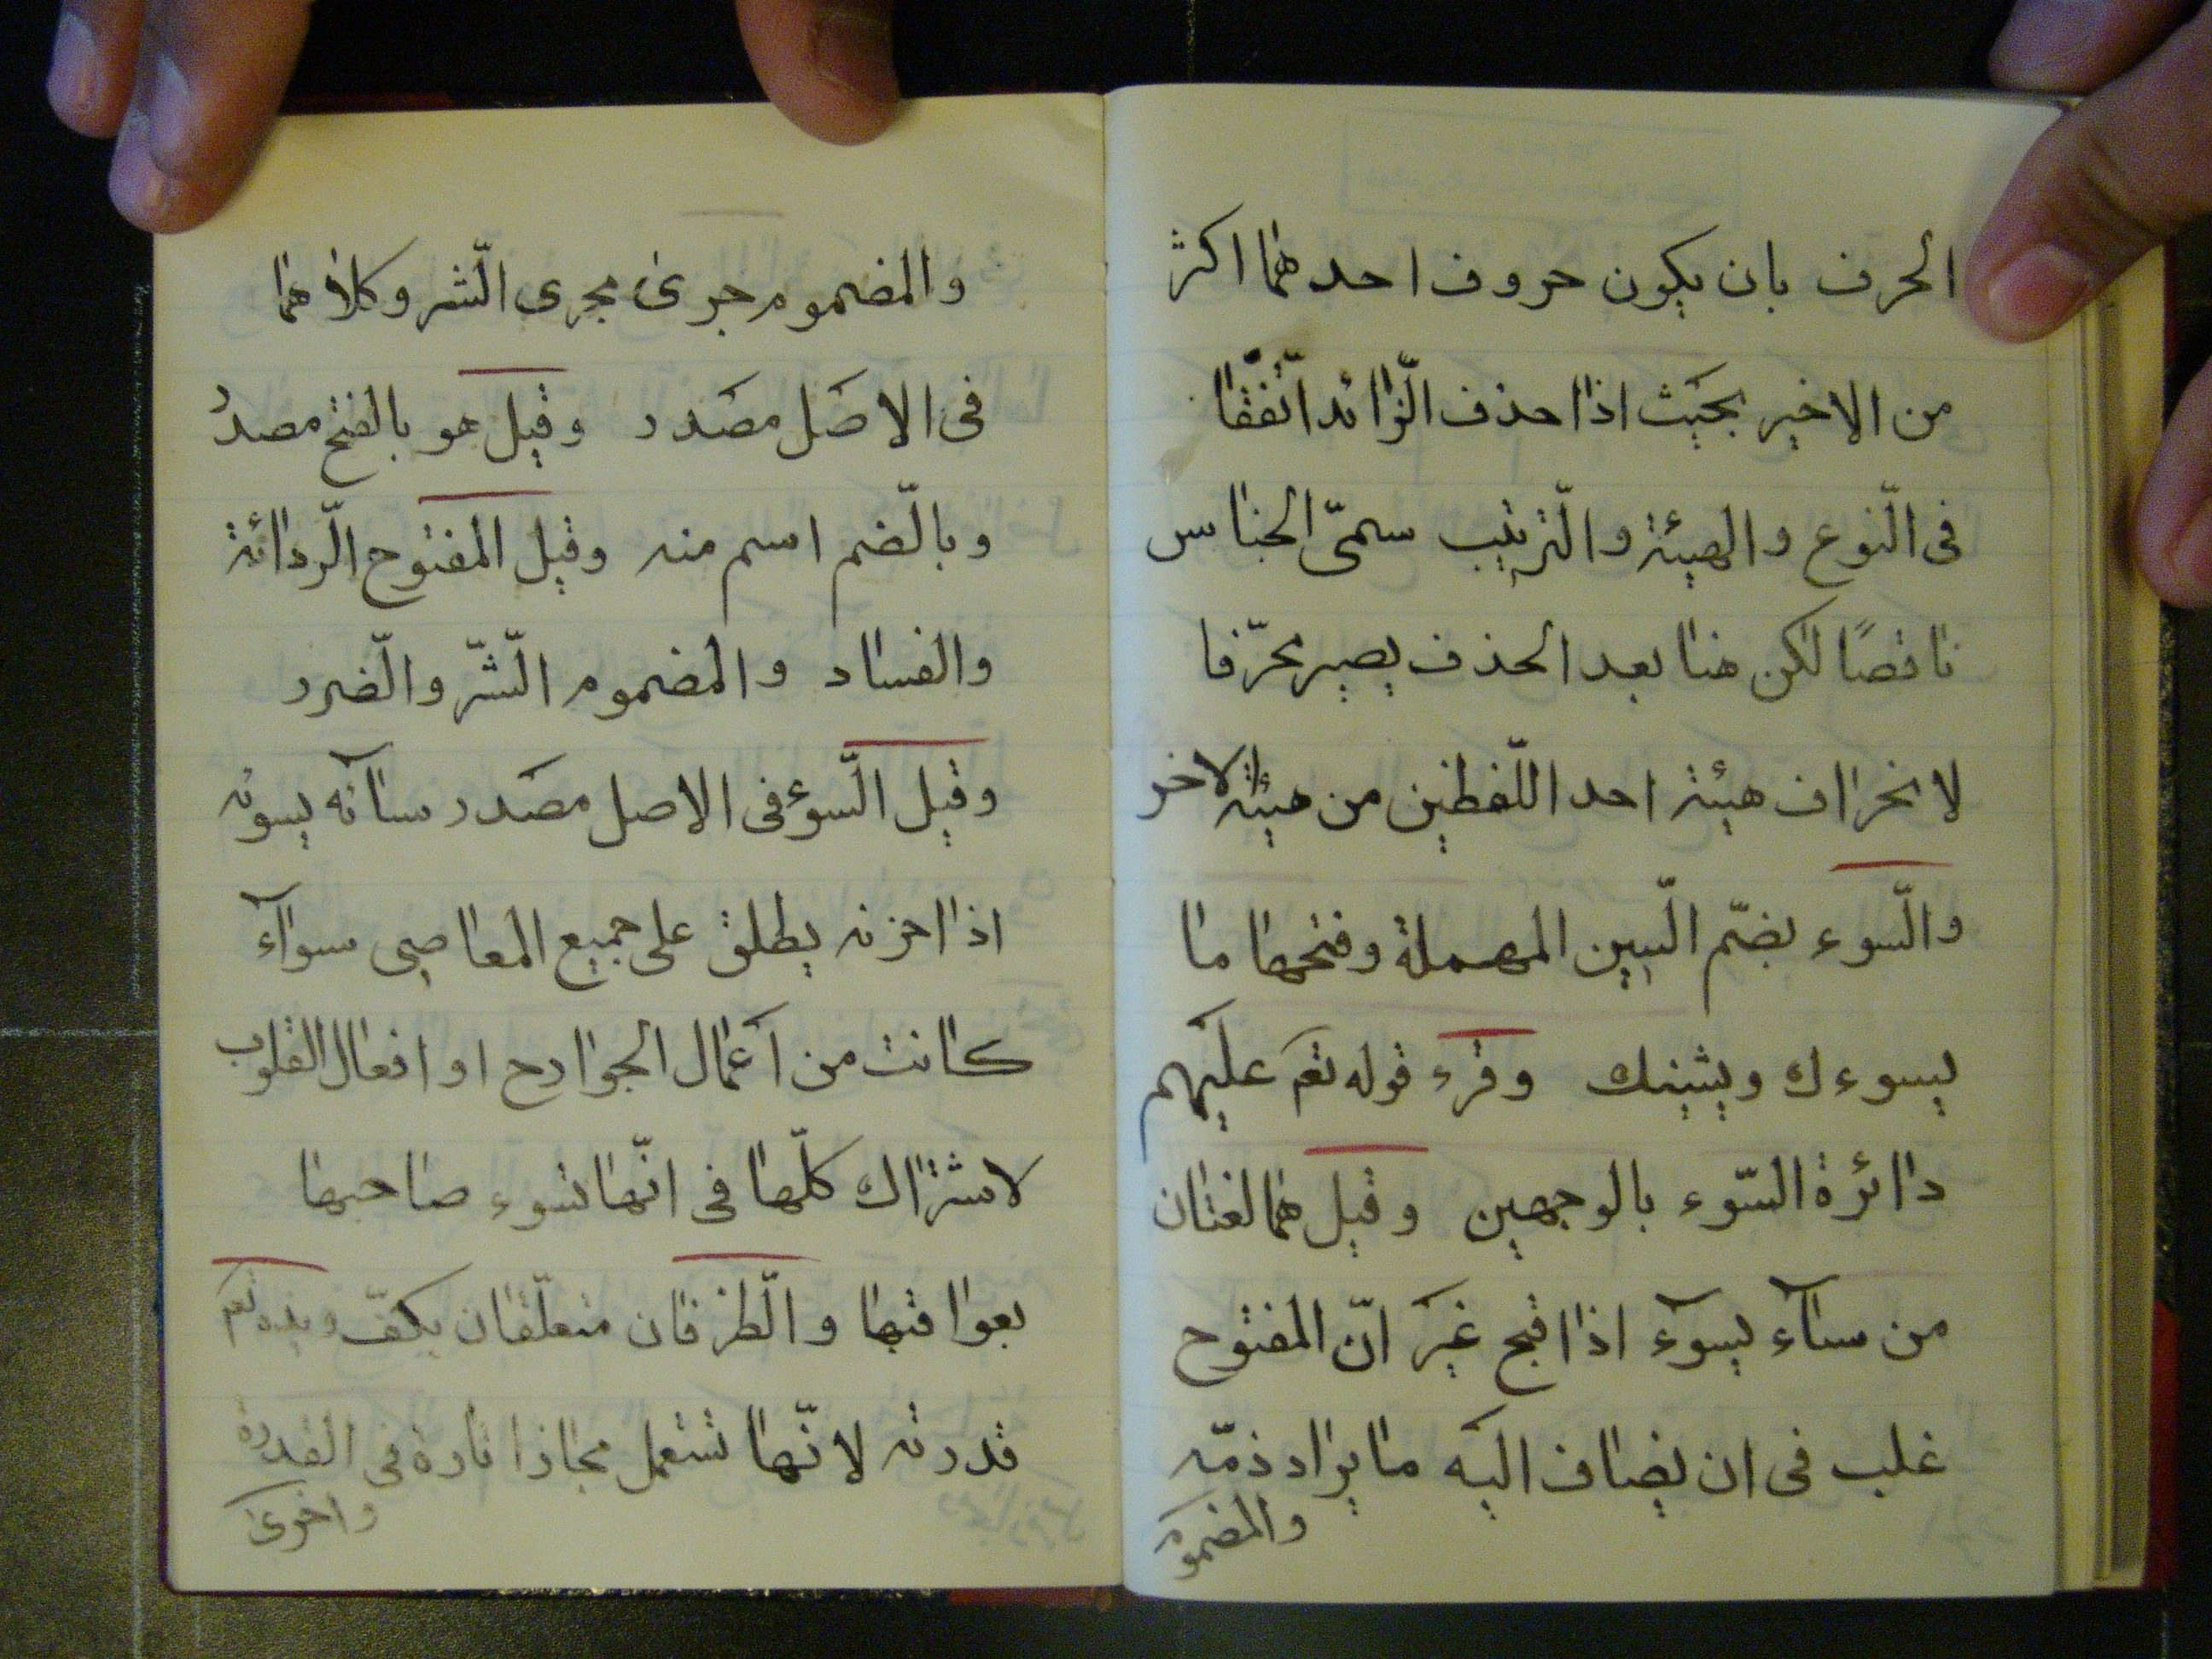 الحرف بان يكون حروف احدهما اكثر
من الاخير بحيث اذا حذف الزّائد اتّفقا
فى النّوع والهيئة والتّرتيب سمّى الجناس
ناقصًا لكن هنا بعد الحذف يصير محرّفا
لانحراف هيئة احد اللّفظين من هيئة الاخر
والسّوء بضمّ السّين المهملة وفتحها ما
يسوءك ويشينك وقرء قوله تعم عليهم
دائرة السّوء بالوجهين وقيل هما لغتان
من سآء يسوء اذا قبح غير انّ المفتوح
غلب فى ان يضاف اليه ما يراد ذمّه
والمضموم
والمضموم جرى مجرى الشّر وكلاهما
فى الاصل مصدر وقيل هو بالفتح مصدر
وبالضّم اسم منه وقيل المفتوح الرّدائة
والفساد والمضموم الشّرّ والضّرر
وقيل السّوء فى الاصل مصدر سائه يسوئه
اذا احزنه يطلق على جميع المعاصى سوآء
كانت من اعمال الجوارح او افعال القلوب
لاشتراك كلّها فى انّها تسوء صاحبها
بعواقبها والظّرفان متعلّقان بكفّ ويده تعم
قدرته لانّها تستعمل مجازا تارة فى القدرة
واخرى